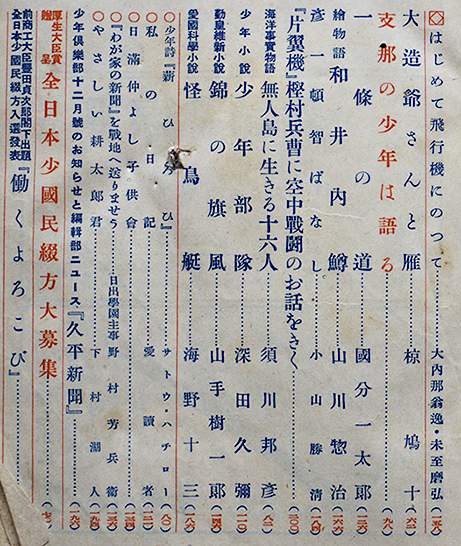 はじめて飛行機にのつて 大内那翁逸・未至磨弘
大造爺さんと雁 椋鳩十
支那の少年は語る
一條の道 國分一太郎
繪物語 和井內鱒 山川惣治
彥一頓智ばなし 小山勝淸
『片翼機』樫村兵曹に空中戰鬪のお話をきく
海洋事實物語 無人島に生きる十六人 須川邦彥
少年小說 少年部隊 深田久彌
勤皇維新小說 錦の旗風 山手樹一郎
愛國科學小說 怪鳥艇 海野十三
○少年詩『新 ひ』 サトウ・ハチロー
○私の日記 愛讀者
○日滿仲よし子供會
○『わが家の新聞』を戰地へ送りませう 日出學園主事 野村芳兵衞
○やさしい耕太郎君 下村湖人
少年俱樂部十二月號のお知らせと編輯部ニュース『久平新聞』
厚生大臣賞贈呈 全日本少國民綴方大募集
前商工大臣豐田貞次郎閣下出題 全日本少國民綴方入選發表『働くよろこび』